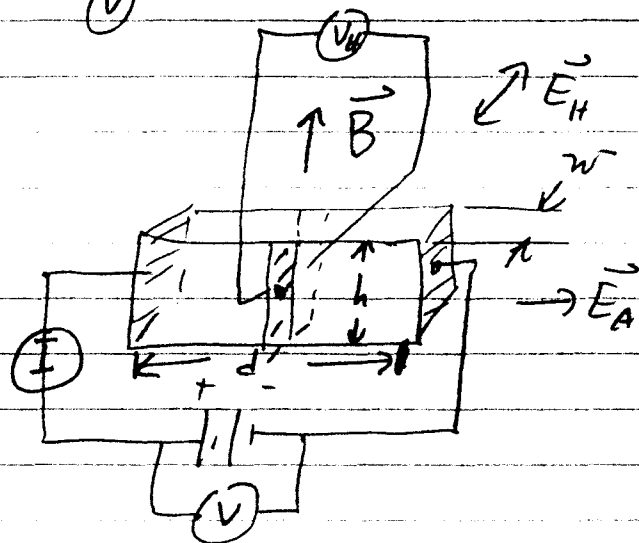 V
V_H
B⃗
E⃗_H
w
h
E⃗_A
I
d
+ -
V